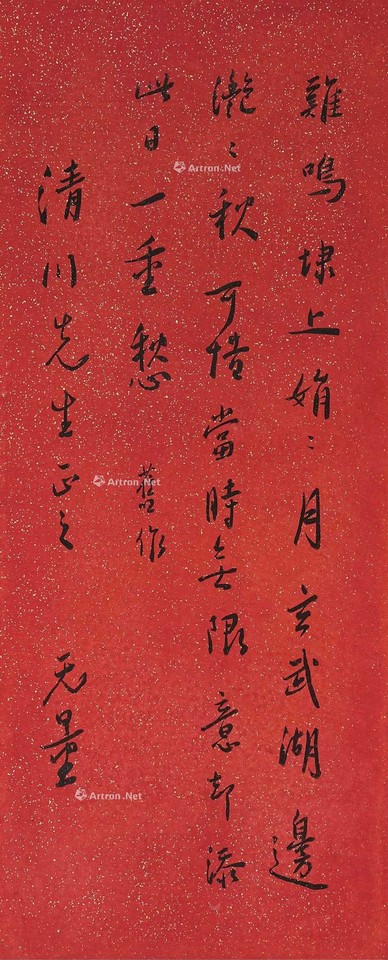 雞鳴埭上娟〻月玄武湖邊
灔〻秋可惜當時無限意却添
此日一重愁
舊作
清川先生正之
无量
Artron.Net
Artron.Net
Artron.Net